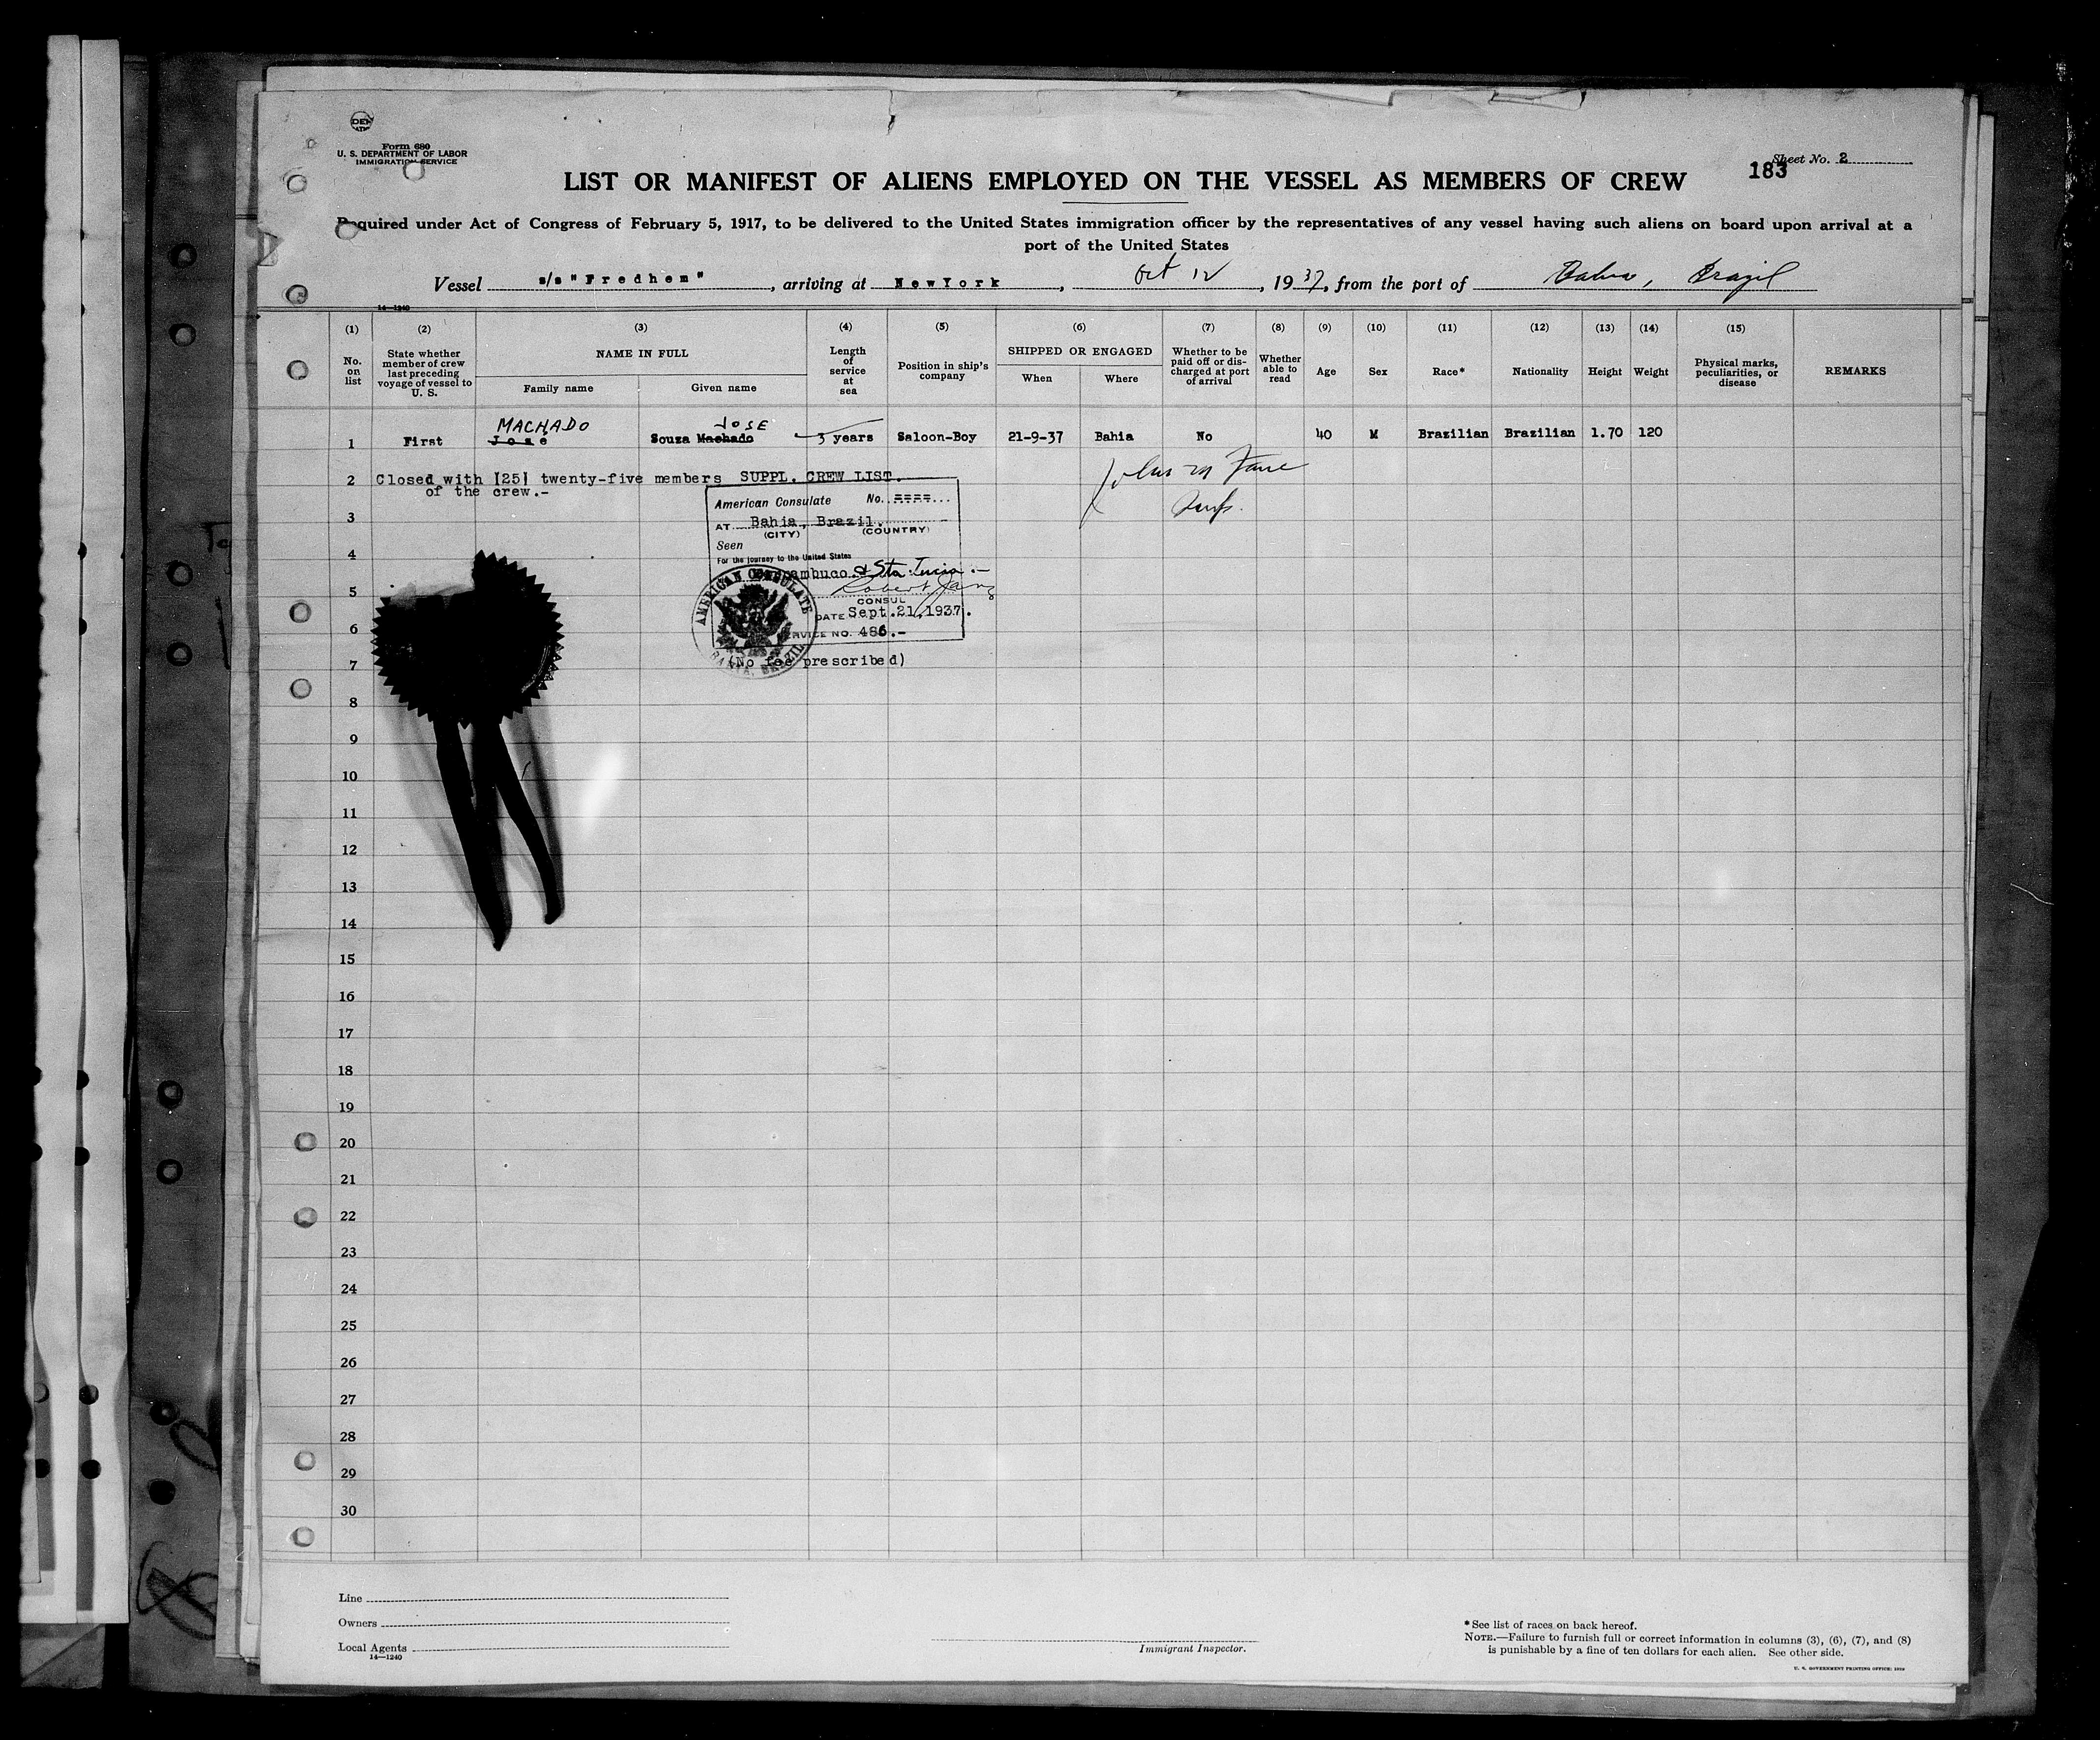 Form 680
U. S. DEPARTMENT OF LABOR
IMMIGRATION SERVICE
Sheet No. 2
183
LIST OR MANIFEST OF ALIENS EMPLOYED ON THE VESSEL AS MEMBERS OF CREW
Required under Act of Congress of February 5, 1917, to be delivered to the United States immigration officer by the representatives of any vessel having such aliens on board upon arrival at a
port of the United States
Vessel s/s "Fredhem", arriving at NewYork, Oct 12, 1937, from the port of Bahia, Brazil
14—1240
(1) (2) (3) (4) (5) (6) (7) (8) (9) (10) (11) (12) (13) (14) (15)
No. on list
State whether member of crew last preceding voyage of vessel to U. S.
NAME IN FULL
Family name
Given name
Length of service at sea
Position in ship's company
SHIPPED OR ENGAGED
When
Where
Whether to be paid off or discharged at port of arrival
Whether able to read
Age
Sex
Race*
Nationality
Height
Weight
Physical marks, peculiarities, or disease
REMARKS
MACHADO JOSE
1 First Jose Souza Machado 3 years Saloon-Boy 21-9-37 Bahia No 40 M Brazilian Brazilian 1.70 120
2 Closed with [25] twenty-five members SUPPL. CREW LIST.
of the crew.-
American Consulate No. ====
3
AT Bahia, Brazil.
(CITY) (COUNTRY)
Seen
4
For the journey to the United States
ambuco & Sta. Lucia.-
5
CONSUL
DATE Sept.21,1937.
6
SERVICE NO. 486.-
AMERICAN CONSULATE
BAHIA, BRAZIL
7
(No fee prescribed)
8
9
10
11
12
13
14
15
16
17
18
19
20
21
22
23
24
25
26
27
28
29
30
Line
Owners
Local Agents
14—1240
Immigrant Inspector.
* See list of races on back hereof.
NOTE.—Failure to furnish full or correct information in columns (3), (6), (7), and (8)
is punishable by a fine of ten dollars for each alien. See other side.
U. S. GOVERNMENT PRINTING OFFICE: